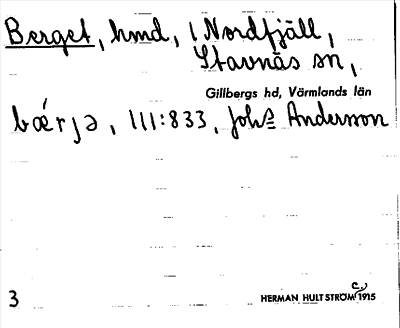 Berget, hmd, i Nordfjäll,
Stavnäs sn,
Gillbergs hd, Värmlands län
bǽrjə, III:833, Johs Andersson
3
HERMAN HULTSTRÖM c. 1915